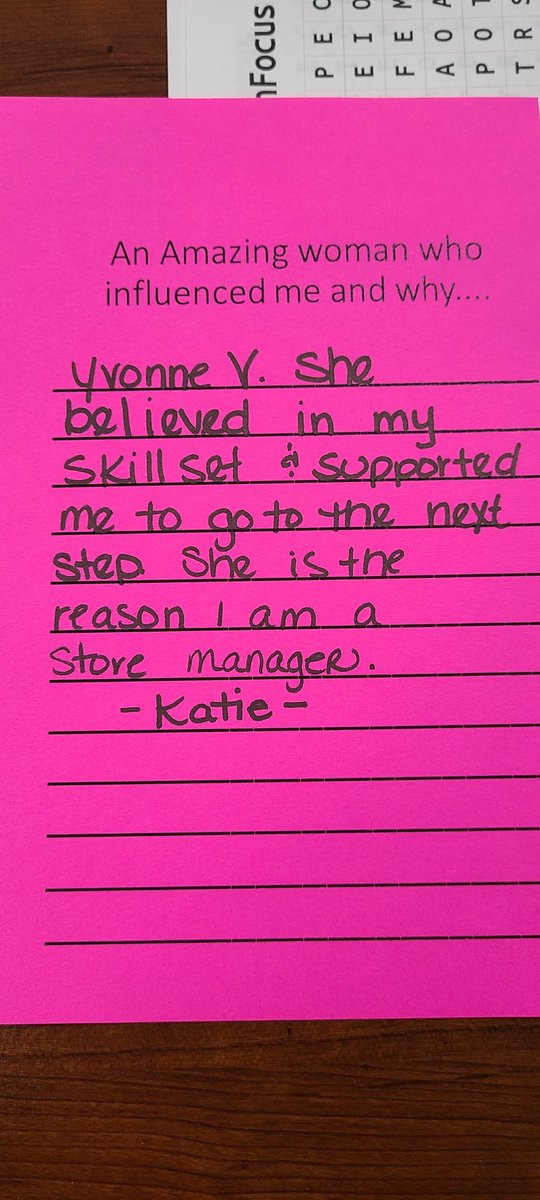 Focus
P E
E I O
F E M
A O A
P O
T R S
An Amazing woman who
influenced me and why....
Yvonne V. She
believed in my
skill set & supported
me to go to the next
step. She is the
reason I am a
Store manager.
- Katie -